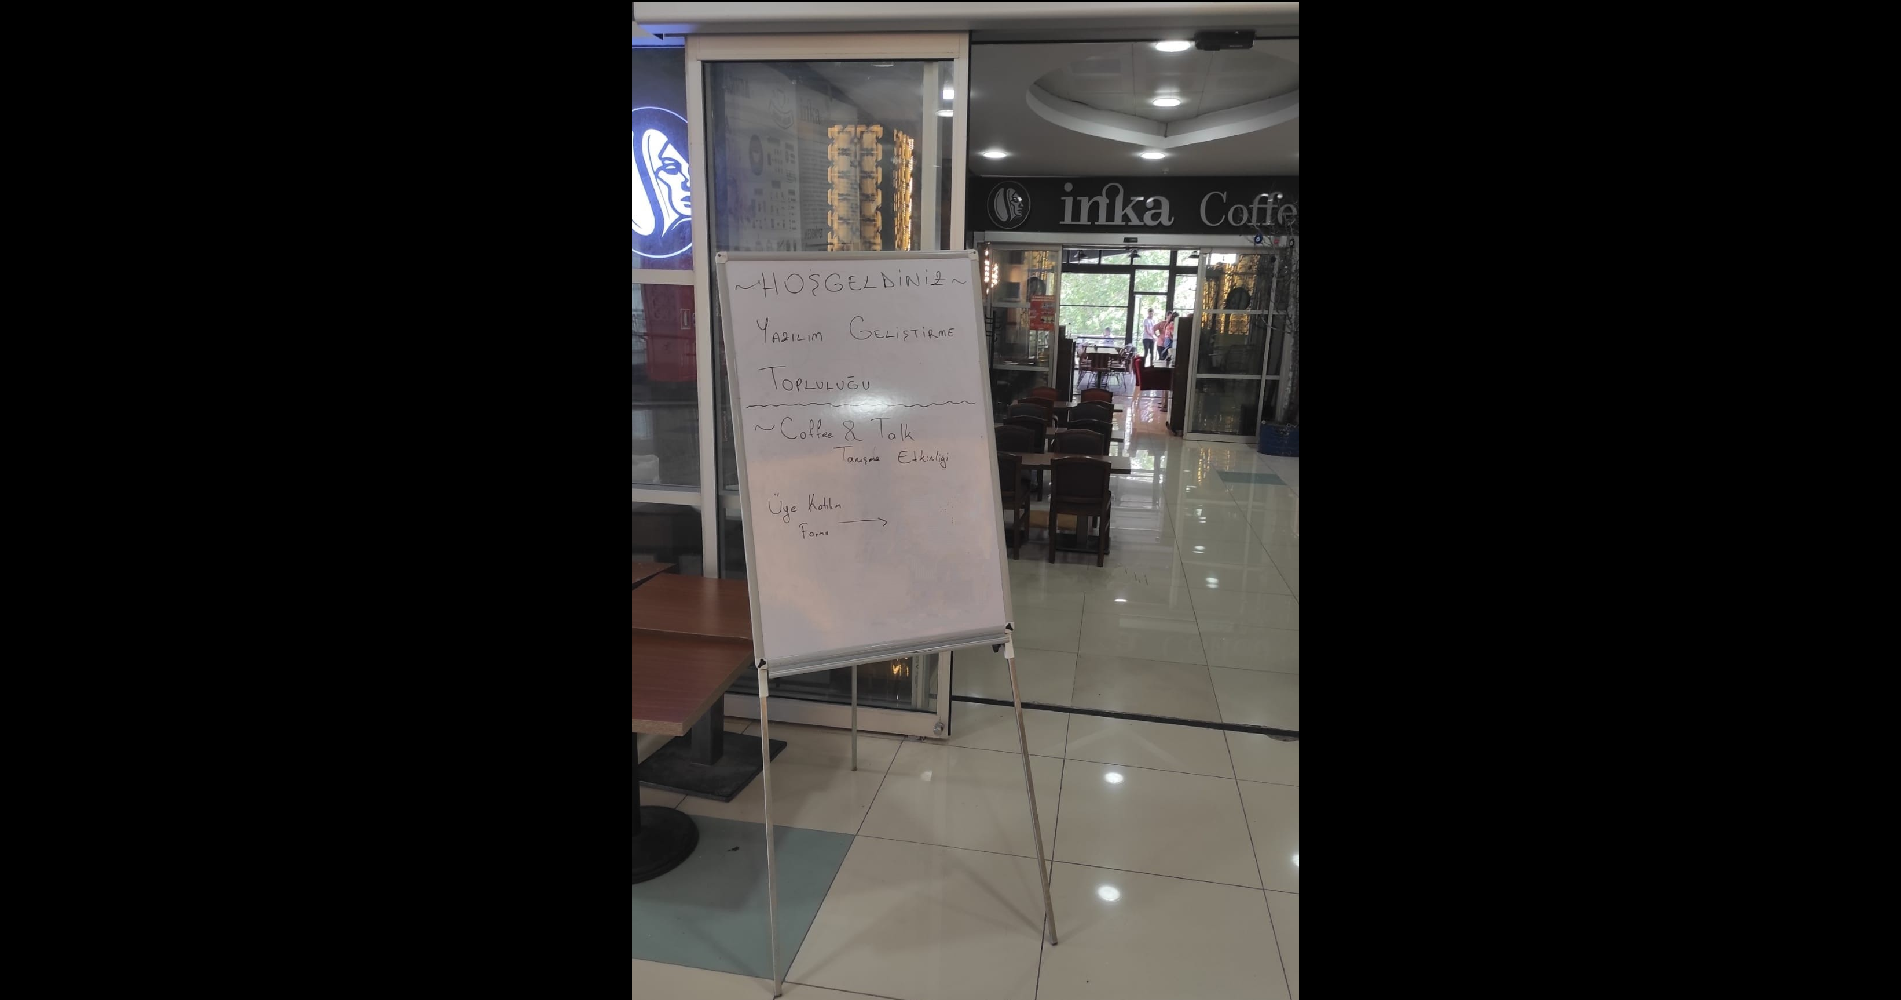 inka Coffe
~HOŞGELDİNİZ~
YAZILIM GELİŞTİRME
TOPLULUĞU
~ Coffee & Talk
Tanışma Etkinliği
Üye Katılım
Formu →